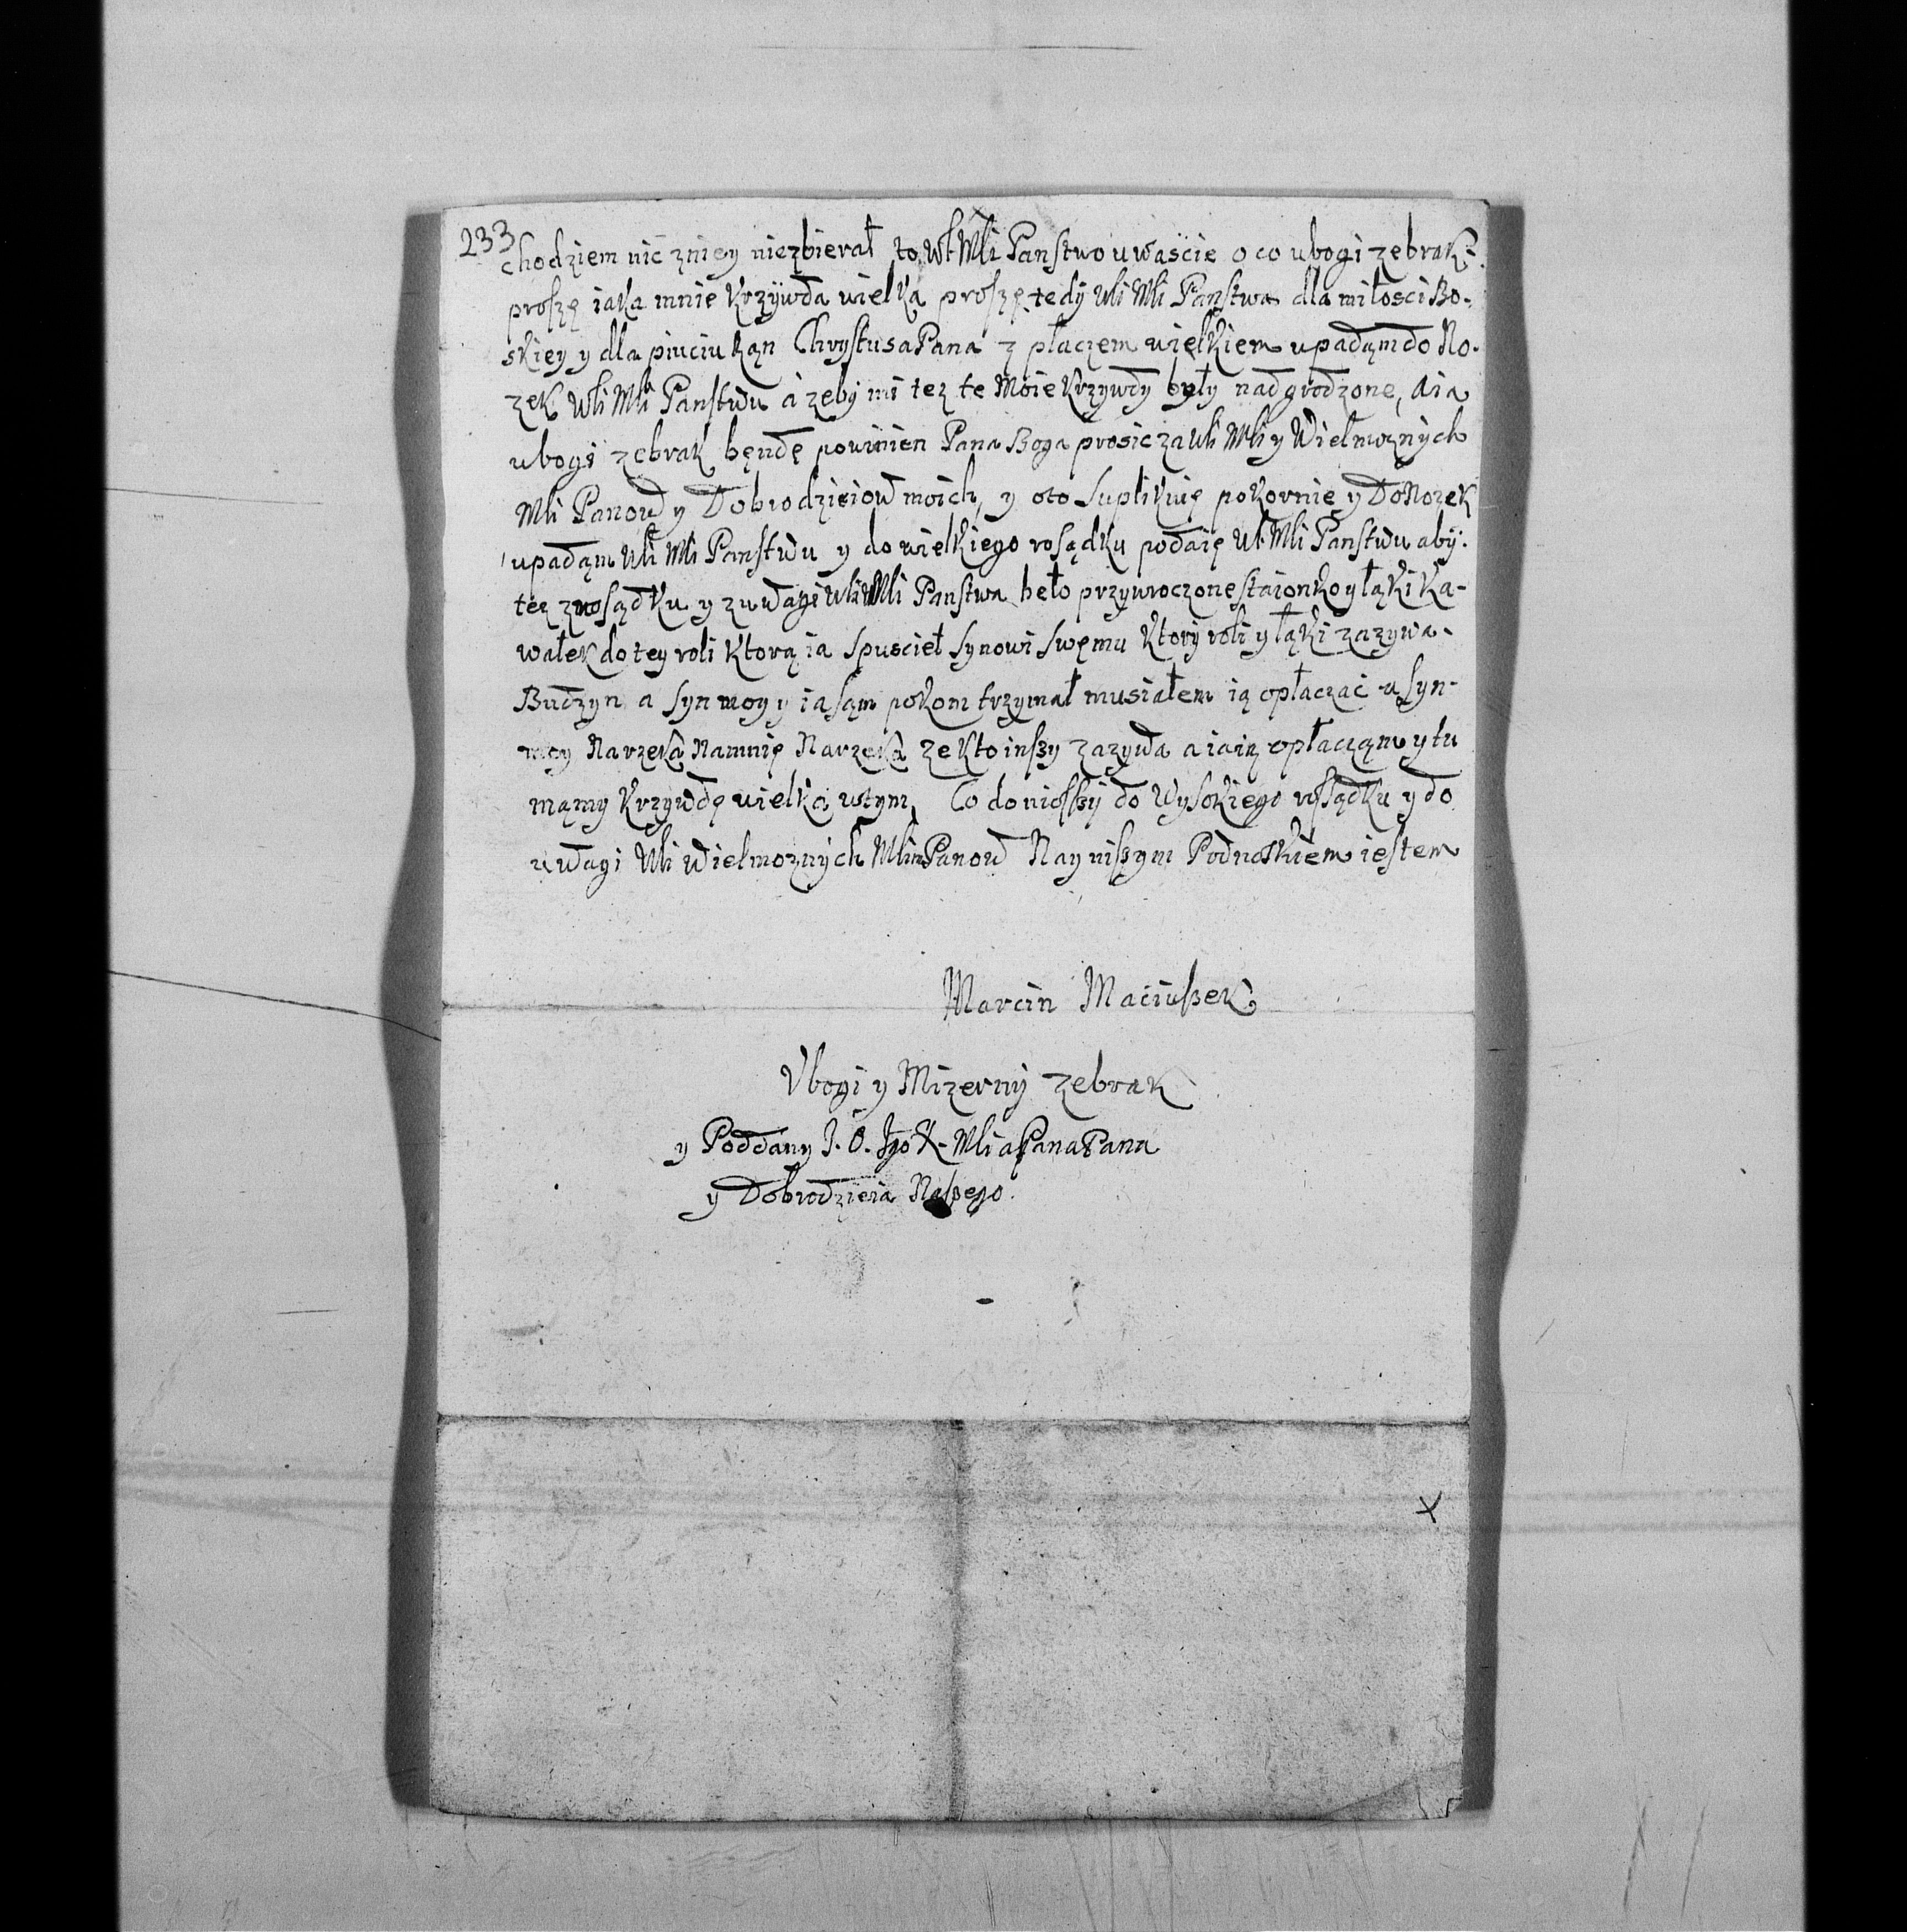 233
chodziem nic zniey niezbierał to Wł Młi Panstwo uwascie o co ubogi zebrak
proszę iaka mnie krzÿwda wielka proszę tedÿ Włi Młi Panstwa dla miłosci Bo-
skiey y dla pinciu Ran Chrystusa Pana z płaczem wielkiem upadąm do No-
zek Włi Młi Panstwu a zeby mi tez te Moie krzywdy były nadgrodzone, a ia
ubogi zebrak bęndę powinien Pana Boga prosic za Włi Młi y Wielmoznych
Młi Panow y Dobrodzieiow moich, y oto suplikuię pokornie y Do Nozek
upadąm Włi Młi Panstwu y do wielkiego rosądku podaię Wł Młi Panstwu abÿ
tez z rosądku y z uwagi Włi Młi Panstwa beło przywroczone staionko y łąki ka-
wałek do tey roli ktorą ia spuscieł synowi swęmu ktory roli y łąki zazywa
Budzyn a syn moy y ia sąm pokom trzymał musiałem ią opłaczać a syn
moy Narzeka Namnię Narzeka ze kto inszy zazywa a ia ią opłacząm y tu
mąmy krzywdę wielką wtym, Co doniosszÿ do Wysokiego rossądku y do
uwagi Włi Wielmoznÿch Młi Panow Naynisszym Podnoskiem iestem
Marcin Maciuszek
Vbogi y Mizernÿ zebrak
y Poddany J. O. Jgo X. Młi a Pana Pana
y Dobrodzieia Naszego.
x